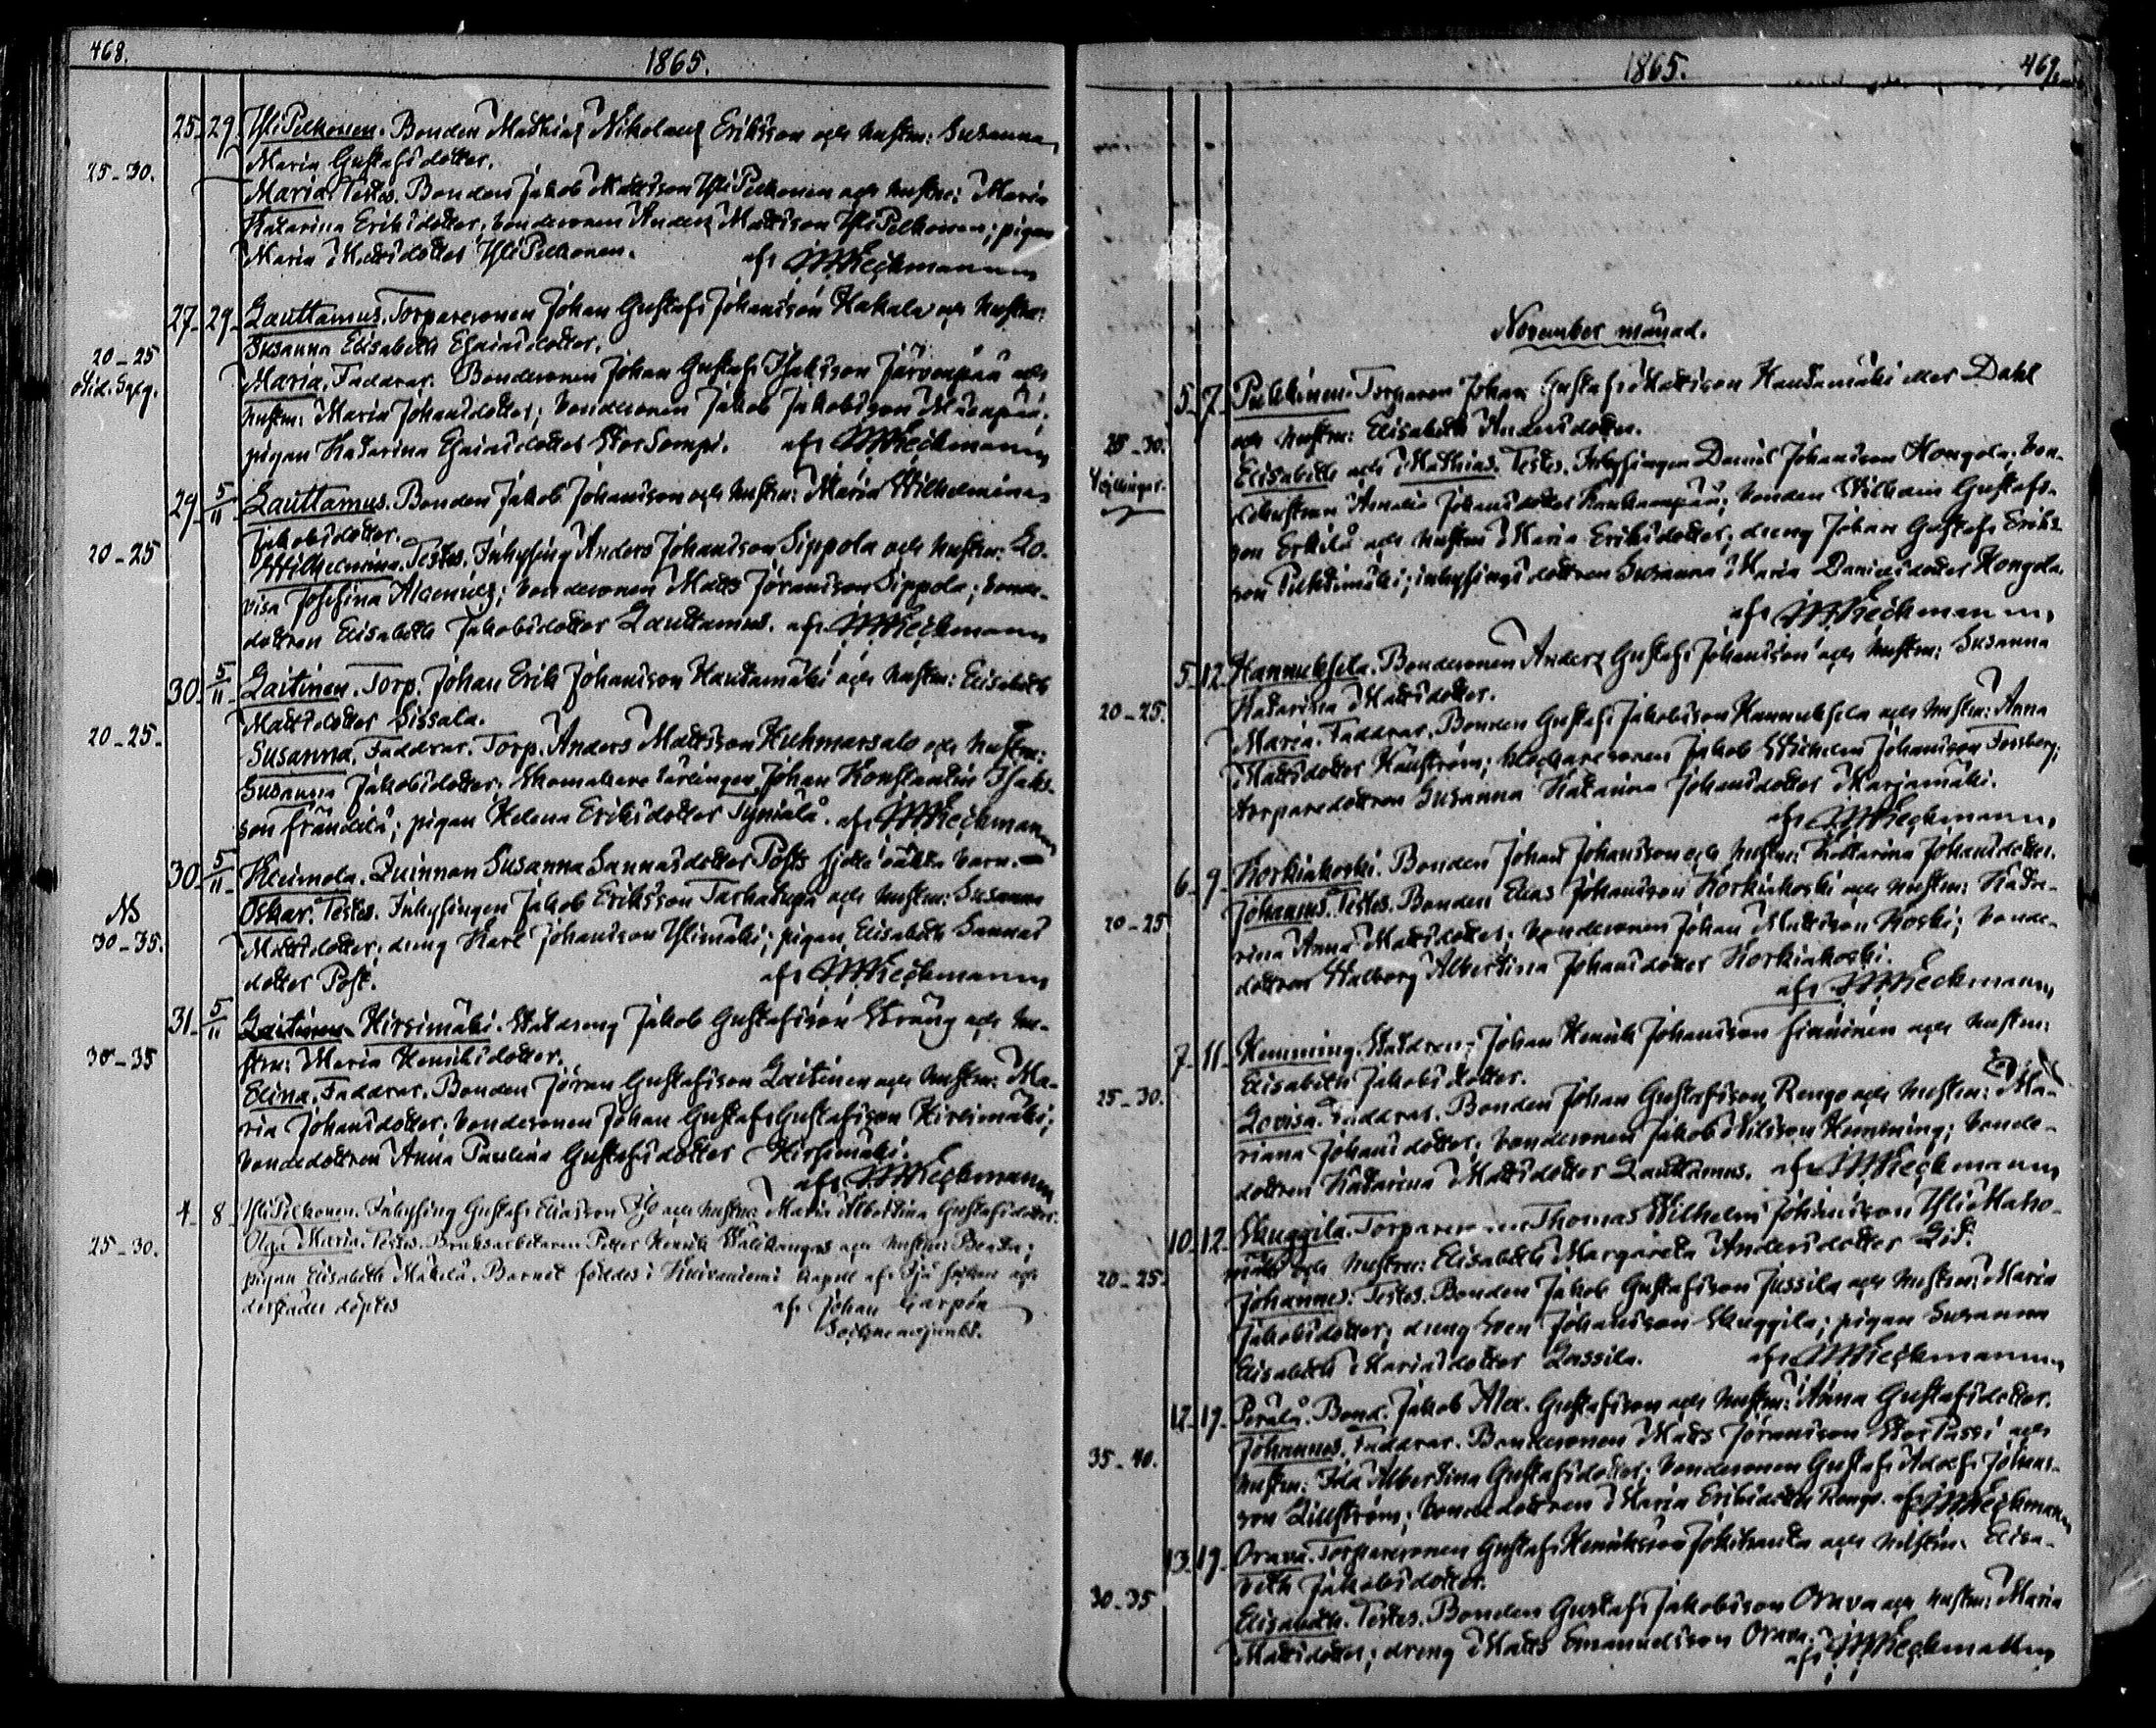 468.
1865.
25. 29. YliPelkonen. Bonden Mathias Nikolaus Eriksson och hustru: Susanna
Maria Gustafsdotter.
25-30.
Maria. Testes. Bonden Jakob Mattsson YliPelkonen och hustru: Maria
Katarina Eriksdotter, bondesonen Anders Mattsson YliPelkonen; pigan
Maria Mattsdotter YliPelkonen. af:
27. 29. Lauttamus. Torparesonen Johan Gustaf Johansson Hakala och hustru:
Susanna Elisabeth Esaiasdotter.
20-25
Maria. Faddrar. Bondesonen Johan Gustaf Isaksson Järvenpää och
hustru: Maria Johansdotter; bondesonen Jakob Jakobsson
pigan Katarina Esaiasdotter StorSompi. af:
29. 5/11 Lauttamus. Bonden Jakob Johansson och hustru: Maria Wilhelmina
Jakobsdotter.
20-25
Wilhelmina. Testes. Inhysing Anders Johansson Sippola och hustru: Lo-
visa Josefina; bondesonen Matts Jöransson Sippola; bonde-
dottren Elisabeth Jakobsdotter Lauttamus. af:
30. 5/11 Laitinen. Torp. Johan Erik Johansson Hautamäki och hustru: Elisabeth
Mattsdotter Sissala.
20-25.
Susanna. Faddrar. Torp. Anders Mattsson Kuhmarsalo och hustru:
Susanna Jakobsdotter; Skomakare lärlingen Johan Konstantin Isaks-
son Frändilä; pigan Helena Eriksdotter Tynjälä. af:
30. 5/11 Heimola. Qvinnan Susanna Sannasdotter Posts sjette oäkta barn.
NB
30-35.
Oskar. Testes. Inhysingen Jakob Eriksson och hustru: Susanna
Mattsdotter; dräng Karl Johansson Ylimäki; pigan Elisabeth Sannas
dotter Post. af:
31. 5/11 Hirsimäki. Statdräng Jakob Gustafsson Sträng och hu-
stru: Maria Henriksdotter.
30-35
Elina. Faddrar. Bonden Jöran Gustafsson Laitinen och hustru: Ma-
ria Johansdotter; bondesonen Johan Gustaf Gustafsson Hirsimäki;
bondedottren Anna Paulina Gustafsdotter Hirsimäki.
af:
4. 8. YliPelkonen. Inhysing Gustaf Eliasson och hustru: Maria Albertina Gustafsdotter.
25-30.
Olga Maria. Testes. Bruksarbetaren Petter Henrik och hustru: Beata;
pigan Elisabeth Mäkelä. Barnet föddes i kapell af socken och
derstädes döptes af: Johan Carpén
Sockneadjunkt.
1865.
469.
November månad.
5. 7. Pulkkinen. Torparen Johan Gustaf Mattsson Hautamäki eller Dahl
och hustru: Elisabeth Andersdotter.
25-30.
Tvillingar.
Elisabeth och Mathias. Testes. Inhysingen Daniel Johansson Kongola; bon-
dehustrun Amalia Johansdotter Kauhanpää; bonden Wilhelm Gustafs-
son Erkilä och hustru Maria Eriksdotter; dräng Johan Gustaf Eriks-
son; inhysingsdottren Susanna Maria Danielsdotter Kongola.
af:
5. 12. Hannuksela. Bondesonen Anders Gustaf Johansson och hustru: Susanna
Katarina Mattsdotter.
20-25.
Maria. Faddrar. Bonden Gustaf Jakobsson Hannuksela och hustru: Anna
Mattsdotter; Klockaresonen Jakob Wilhelm Johansson Forsberg;
torparedottren Susanna Katarina Johansdotter Marjamäki.
af:
6. 9. Korkiakoski. Bonden Johan Johansson och hustru: Kattarina Johansdotter.
20-25
Johannes. Testes. Bonden Elias Johansson Korkiakoski och hustru: Kata-
rina Anna Mattsdotter; bondesonen Johan Mattsson Koski; bonde-
dottren Walborg Albertina Johansdotter Korkiakoski.
af:
7. 11. Hemming. Statdräng Johan Henrik Johansson Finninen och hustru:
Elisabeth Jakobsdotter.
25-30.
Lovisa. Faddrar. Bonden Johan Gustafsson Rengo och hustru: Ma-
riana Johansdotter; bondesonen Jakob Nilsson Hemming; bonde-
dottren Katarina Mattsdotter Lauttamus. af:
10. 12. Skuggila. Torparesonen Thomas Wilhelm Johansson YliMaho-
och hustru: Elisabeth Margareta Andersdotter
20-25.
Johannes. Testes. Bonden Jakob Gustafsson Jussila och hustru: Maria
Jakobsdotter; dräng Sven Johansson Skuggila; pigan Susanna
Elisabeth Mariasdotter Lassila. af:
12. 19. Perälä. Bond. Jakob Alex. Gustafsson och hustru: Anna Gustafsdotter.
35-40.
Johannes. Faddrar. Bondesonen Matts Jöransson StorPassi och
hustru: Ida Albertina Gustafsdotter; bondesonen Gustaf Adolf Johans-
son Lillström; bondedottren Maria Eriksdotter Rengo. af:
13. 19. Orava. Torparesonen Gustaf Henriksson Jokiranta och hustru: Elisa-
beth Jakobsdotter.
30-35
Elisabeth. Testes. Bonden Gustaf Jakobsson Orava och hustru: Maria
Mattsdotter; dräng Matts Emanuelsson Orava.
af: